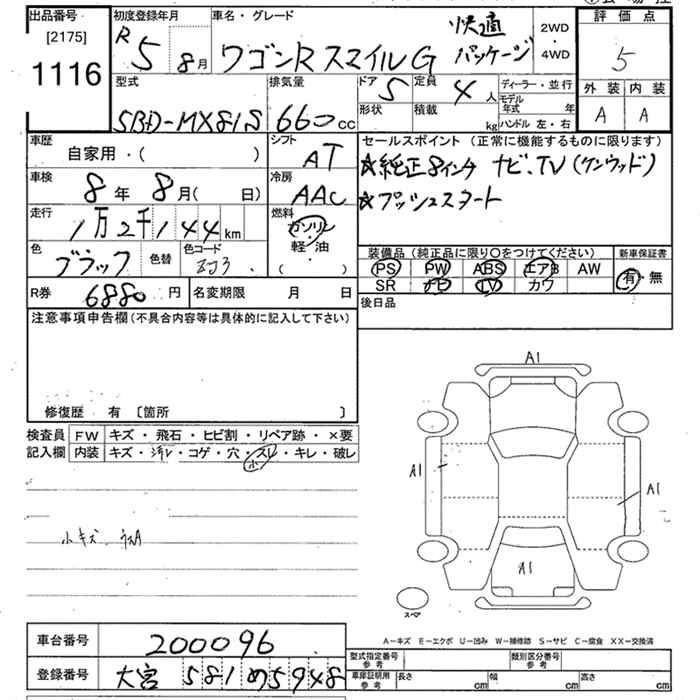 出品番号
[2175]
1116
初度登録年月
R 5 8月
車名・グレード
ワゴンR スマイル G 快適パッケージ
2WD
・
4WD
評価点
5
外装 内装
A A
型式
5BD-MX81S
排気量
660cc
ドア 5
定員 4人
形状
積載 kg
ディーラー・並行
モデル年式 年
ハンドル 左・右
車歴
自家用・( )
シフト
AT
車検
8年 8月( 日)
冷房
AAC
走行
1万2千144km
燃料
ガソリン
軽・油
( )
色
ブラック
色替
色コード
ZJ3
R券 6880円
名変期限 月 日
セールスポイント(正常に機能するものに限ります)
☆純正8インチ ナビ、TV(ケンウッド)
☆プッシュスタート
装備品(純正品に限り○をつけてください)
新車保証書
PS PW ABS エアB AW
SR ナビ TV カワ
有・無
後日品
注意事項申告欄(不具合内容等は具体的に記入して下さい)
修復歴 有 〔箇所 〕
検査員記入欄
FW キズ・飛石・ヒビ割・リペア跡・×要
内装 キズ・汚レ・コゲ・穴・スレ・キレ・破レ
小
小キズ ウスA
A1
A1
A1
A1
スペア
A-キズ E-エクボ U-凹み W-補修跡 S-サビ C-腐食 XX-交換済
車台番号 200096
登録番号 大宮 581 め 5948
型式指定番号
参考
類別区分番号
参考
車庫証明用
参考
長さ cm
幅 cm
高さ cm